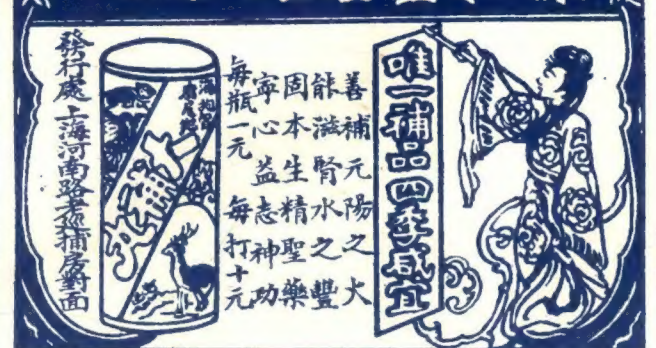 唯一補品四季咸宜
善補元陽之火
能滋腎水之豐
固本生精聖藥
寧心益志神功
每瓶一元 每打十元
海狗腎
發行處 上海河南路老巡捕房對面